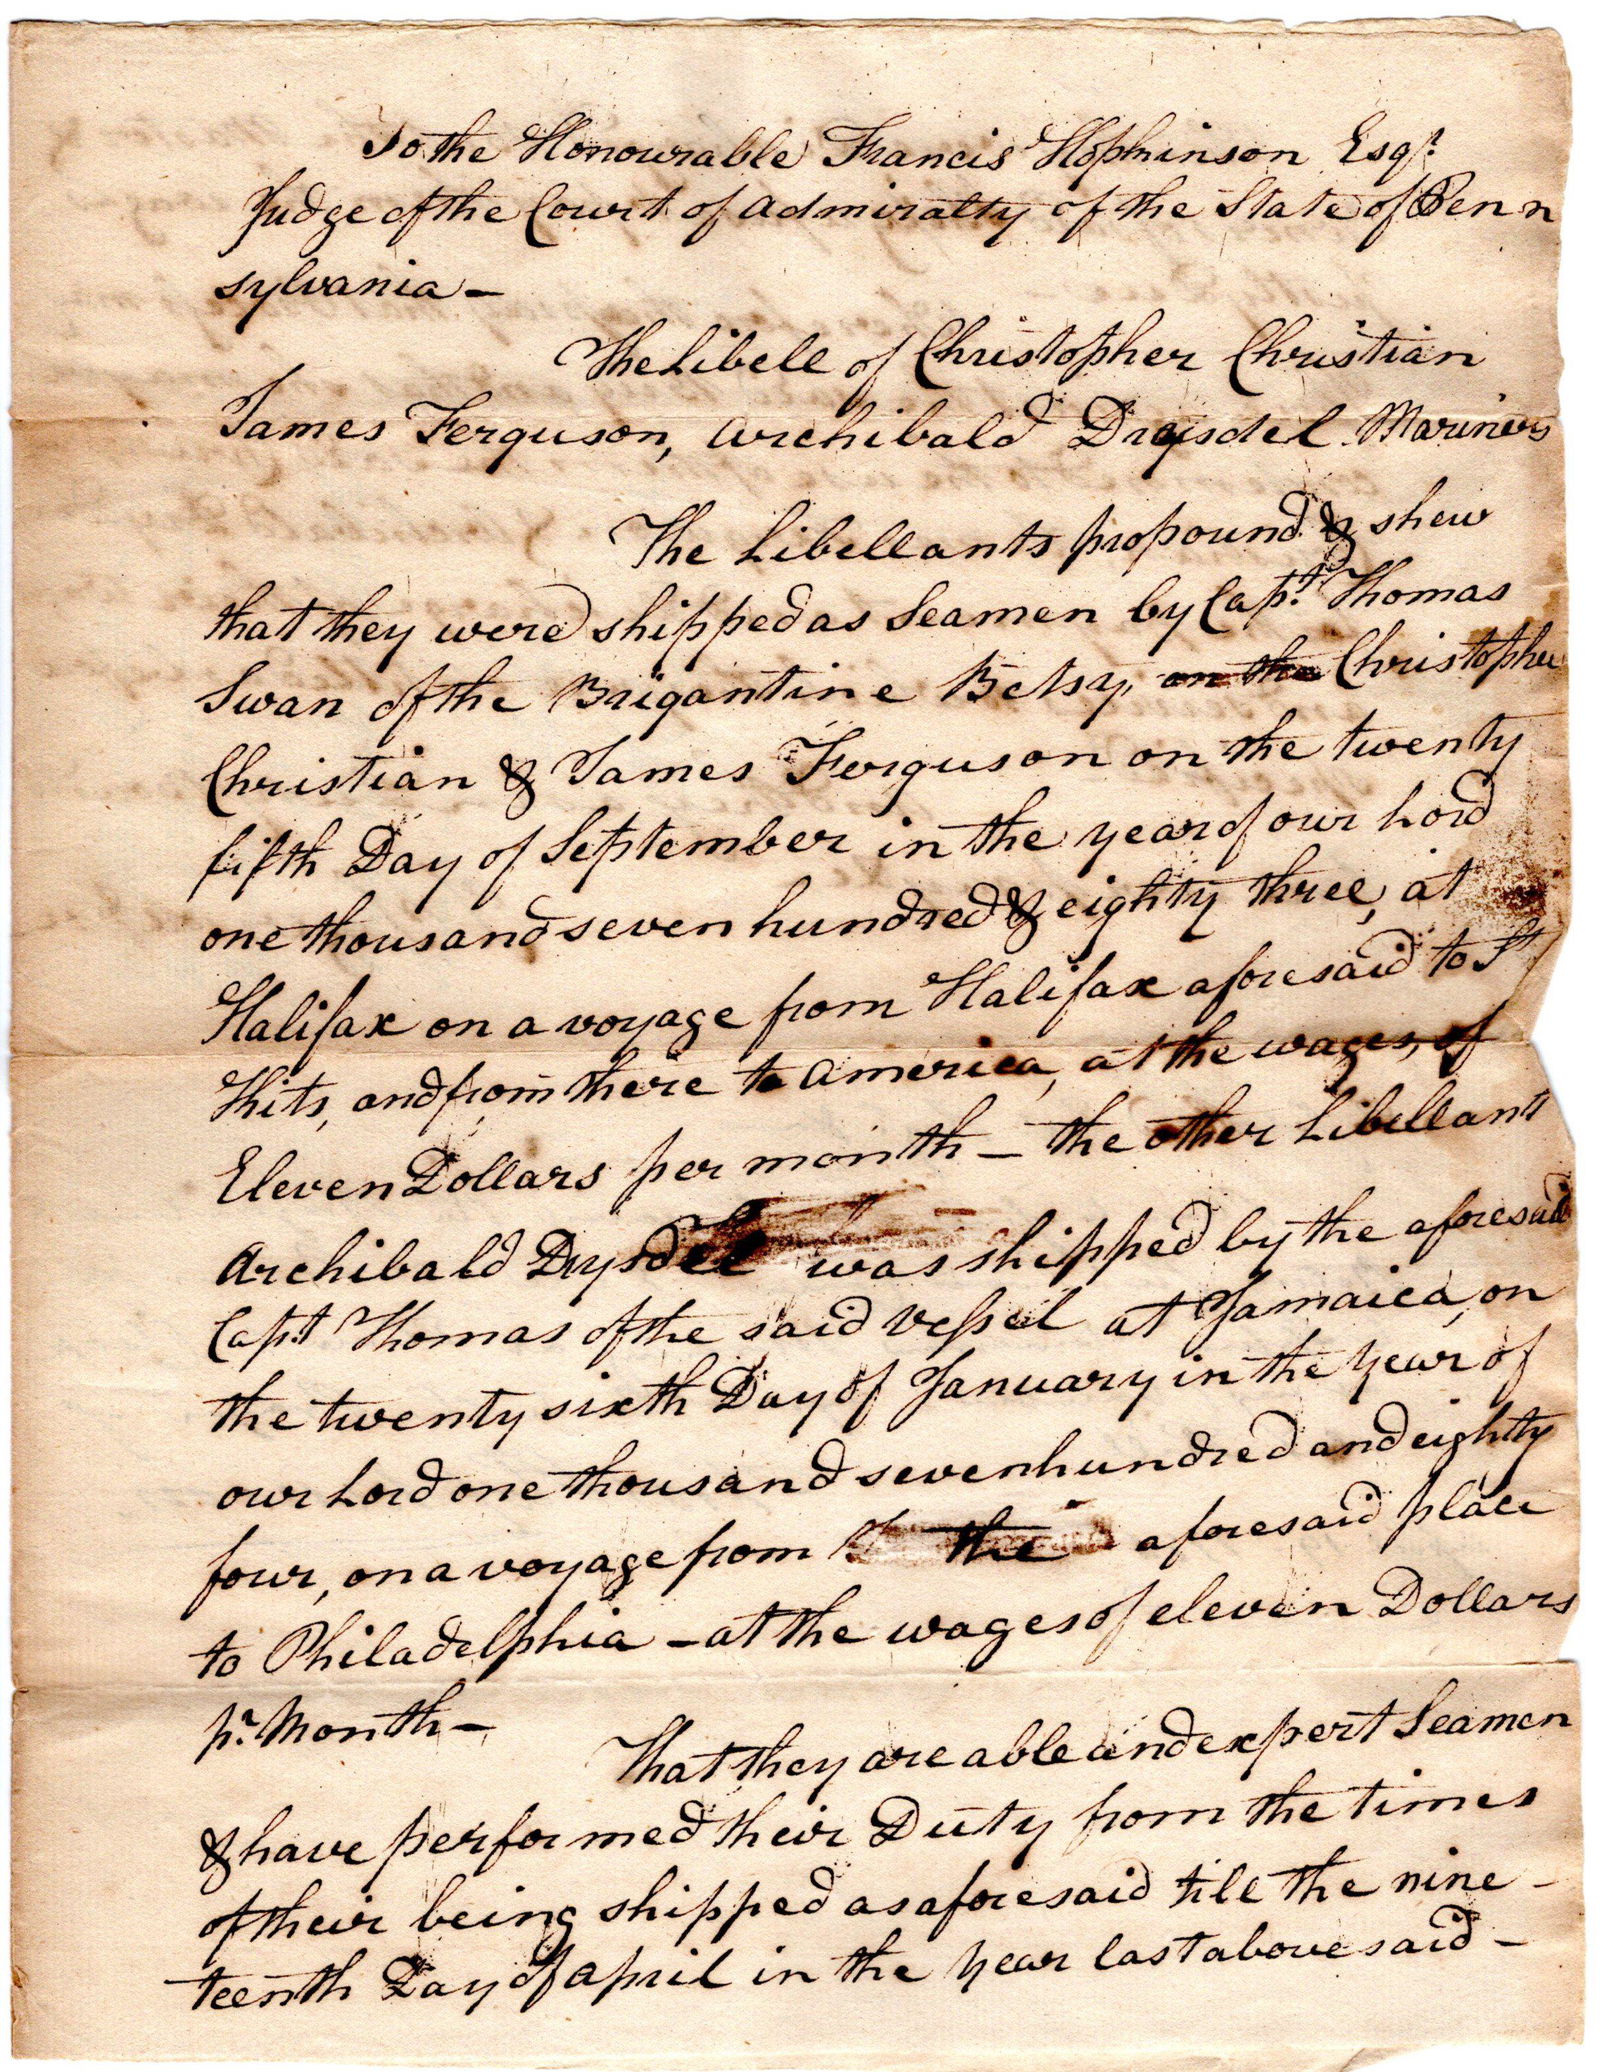 To the Honourable Francis Hopkinson Esqr.
Judge of the Court of Admiralty of the State of Penn
sylvania –
The Libell of Christopher Christian
James Ferguson, Archibald Drysdel Mariners
The Libellants propound & shew
that they were shipped as Seamen by Capt. Thomas
Swan of the Brigantine Betsy, on the Christopher
Christian & James Ferguson on the twenty
fifth Day of September in the year of our Lord
one thousand seven hundred & eighty three, at
Halifax on a voyage from Halifax aforesaid to St
Kits, and from there to America, at the wages, of
Eleven Dollars per month – the other Libellant
Archibald Drysdel was shipped by the aforesaid
Capt Thomas of the said Vessel at Jamaica, on
the twenty sixth Day of January in the year of
our Lord one thousand seven hundred and eighty
four, on a voyage from the aforesaid place
to Philadelphia – at the wages of eleven Dollars
pr. Month –
That they are able and expert Seamen
& have performed their Duty from the times
of their being shipped as aforesaid till the nine –
teenth Day of April in the year last above said –